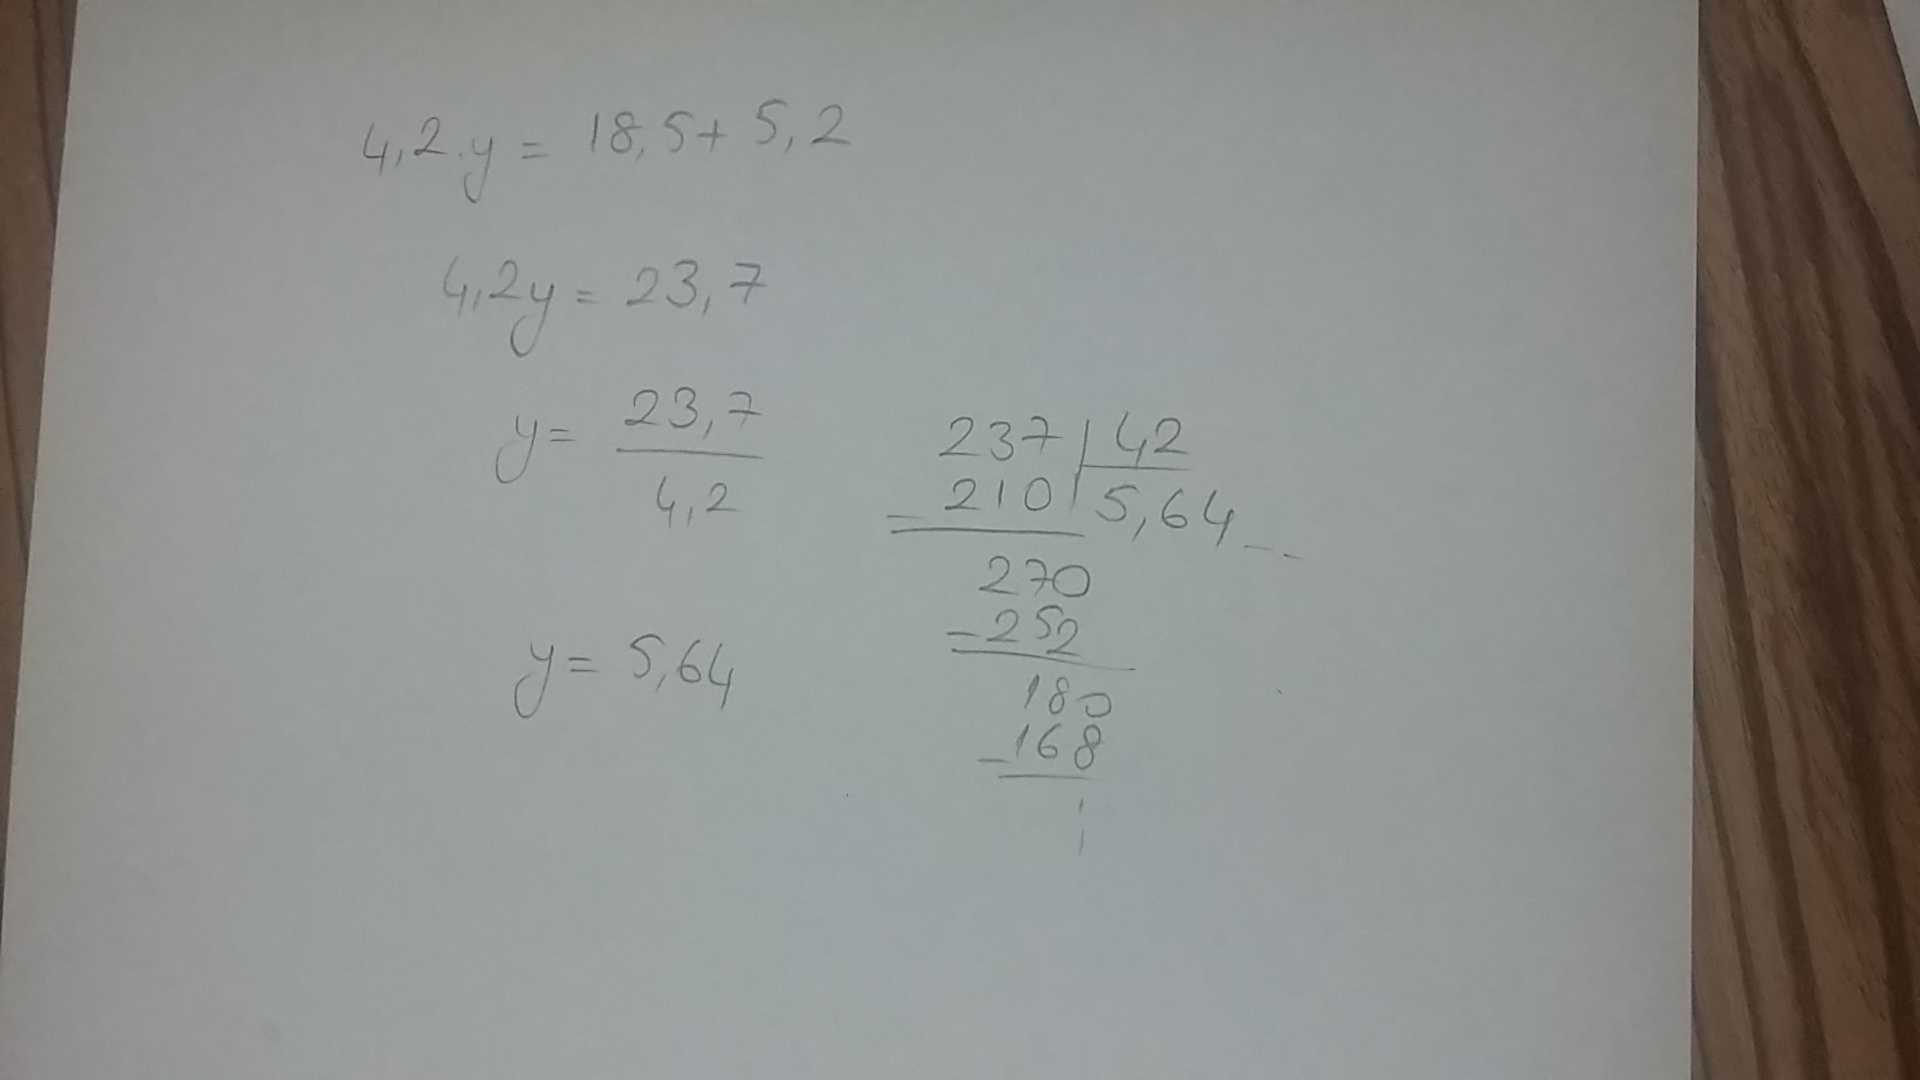 4,2.y = 18,5 + 5,2
4,2y = 23,7
y = 23,7
4,2
y = 5,64
237 | 42
- 210 | 5,64 ...
270
- 252
180
- 168